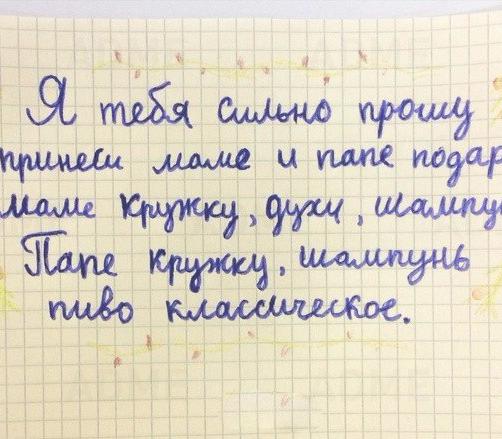 Я тебя сильно прошу
принеси маме и папе подар
маме кружку, духи, шампу
Папе кружку, шампунь
пиво классическое.